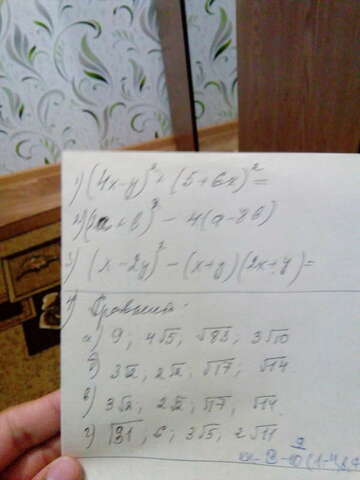 1) (4x-y)² + (5+6x)² =
2) (3a+b)³ - 4(a-8b)
3) (x-2y)² - (x+y)(2x+y) =
4) Сравнить:
а) 9; 4√5; √83; 3√10
б) 3√2; 2√2; √17; √14.
в) 3√2; 2√2; √17; √14.
г) √31; 6; 3√5; 2√11